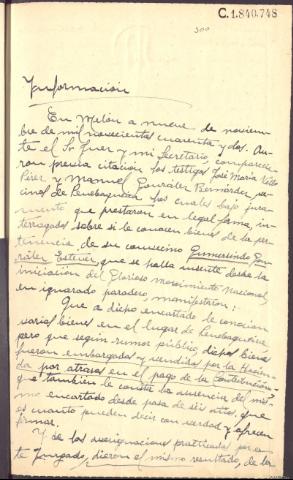 C.1.840.748
300
Información
En Melón a nueve de noviem-
bre de mil novecientos cuarenta y dos. An-
te el Sr Juez y mi Secretario, comparecie-
ron previa citación los testigos José María
Pérez y Manuel González Bernárdez ve-
cinos de los cuales bajo jura-
mento que prestaron en legal forma, in-
terrogados sobre si le conocen bienes de la per-
tenencia de su convecino Gumersindo Gon-
zález Estévez que se halla ausente desde la
iniciación del Glorioso movimiento Nacional
en ignorado paradero, manifestaron:
Que a dicho encartado le conocian
varios bienes en el lugar de
pero que según rumor público dichos bienes
fueron embargados y vendidos por la Hacien-
da por atrasos en el pago de la Contribución
que también le consta la ausencia del mis-
mo encartado desde pasa de seis años, que
es cuanto pueden decir con verdad y ofrecen
firmar.
Y de las averiguaciones practicadas por es-
te Juzgado, dieron el mismo resultado, de la